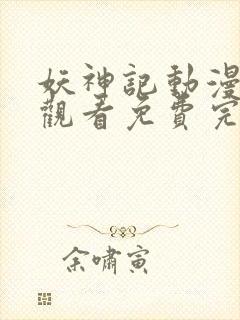 妖神記動漫
觀看免費完
余嘯寅